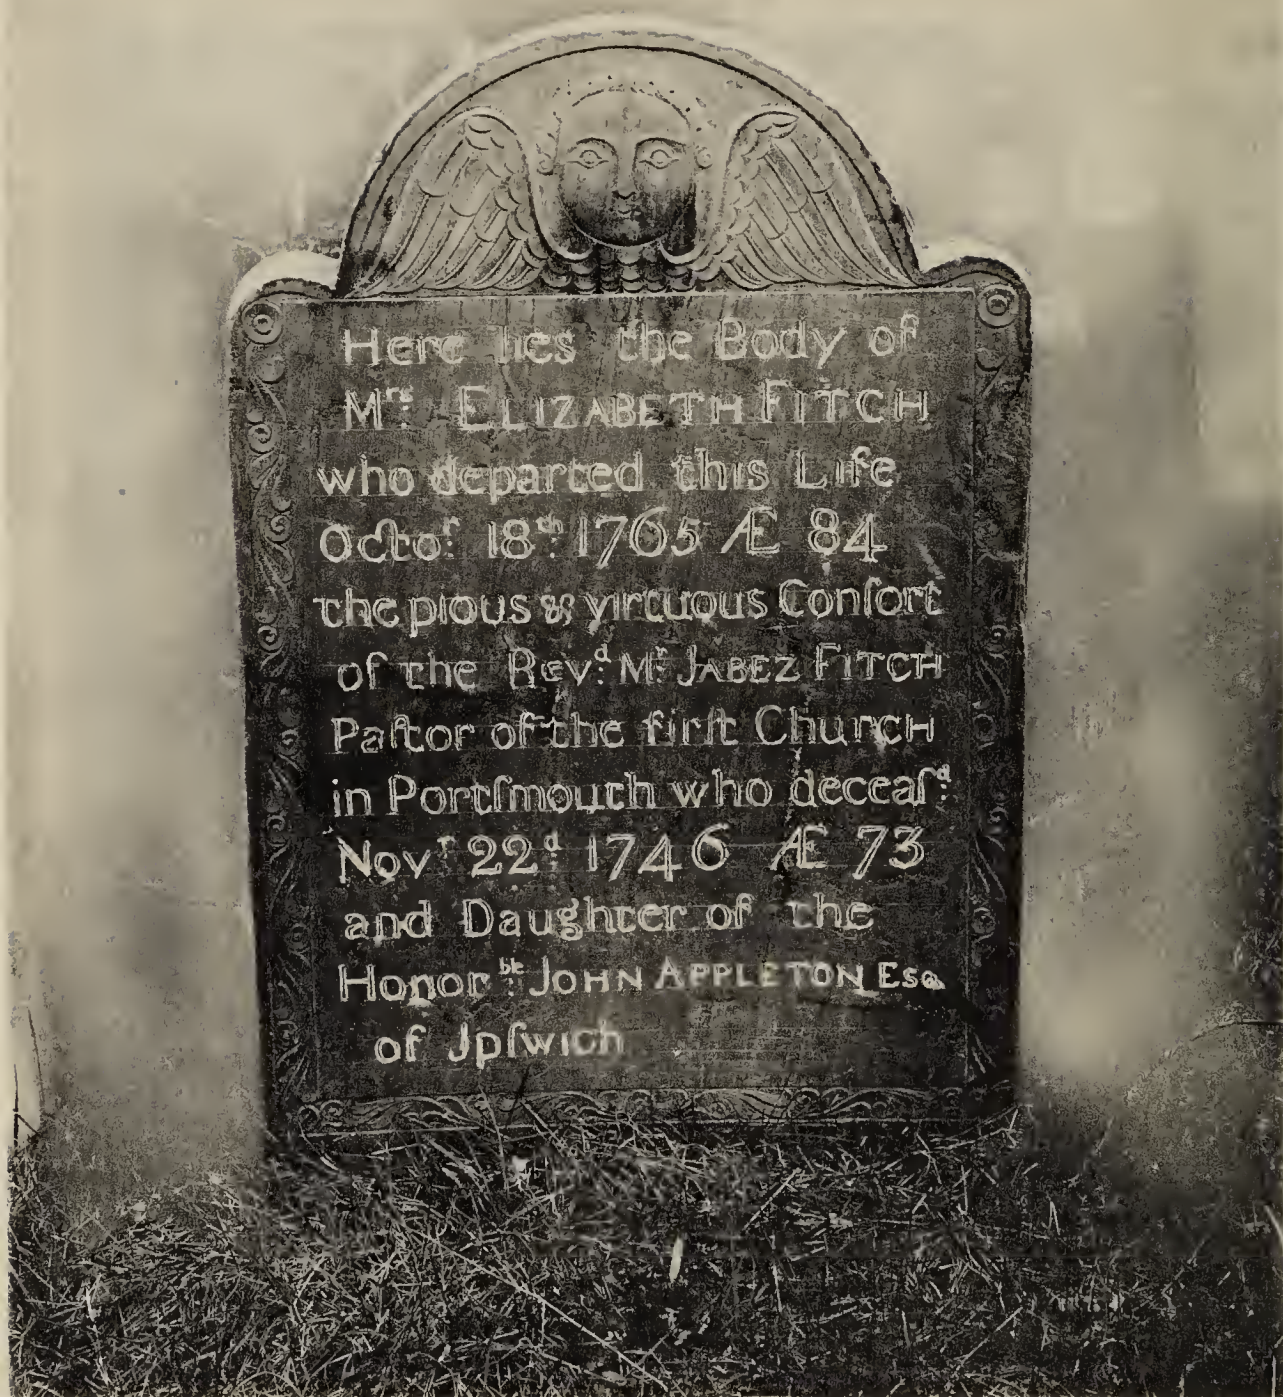 Here lies the Body of
Mrs. ELIZABETH FITCH
who departed this Life
Octor. 18th. 1765 Æ 84
the pious & virtuous Conſort
of the Revd. Mr. JABEZ FITCH
Paſtor of the firſt Church
in Portſmouth who deceaſd.
Novr 22d. 1746 Æ 73
and Daughter of the
Honorble. JOHN APPLETON Esq.
of Jpſwich